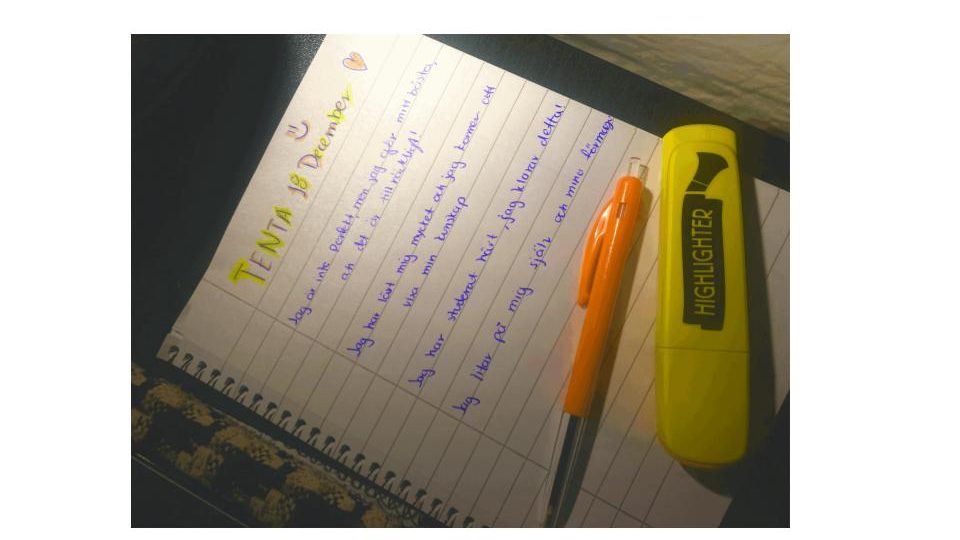 TENTA 18 December
Jag är inte perfekt, men jag gör mitt bästa,
och det är tillräckligt!
Jag har lärt mig mycket och jag kommer att
visa min kunskap
Jag har studerat hårt, jag klarar detta!
Jag litar på mig själv och mina förmågor
HIGHLIGHTER